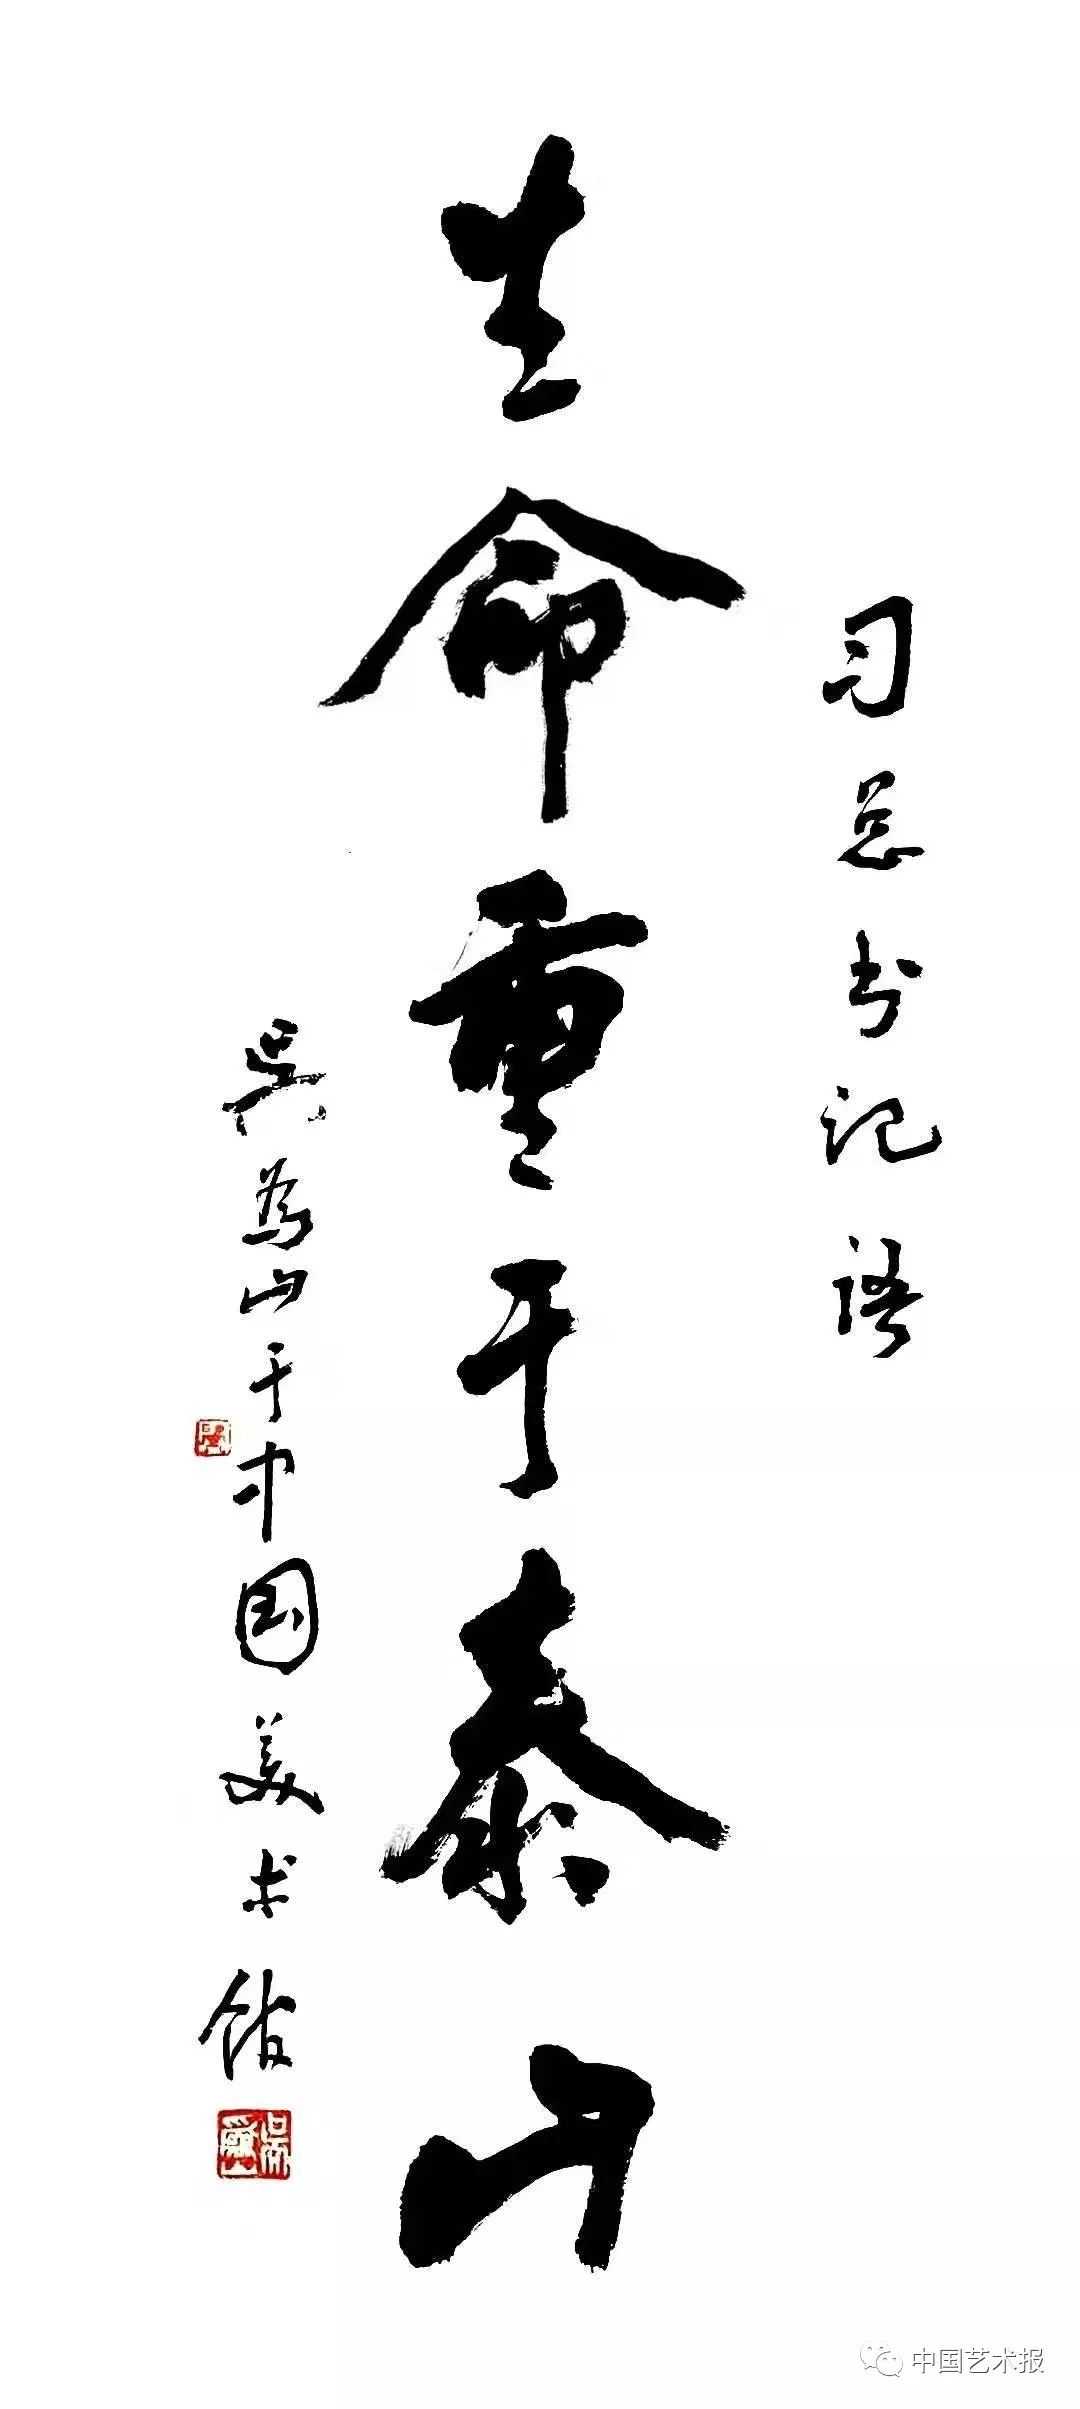 习总书记语
生命重于泰山
吴为山于中国美术馆
中国艺术报